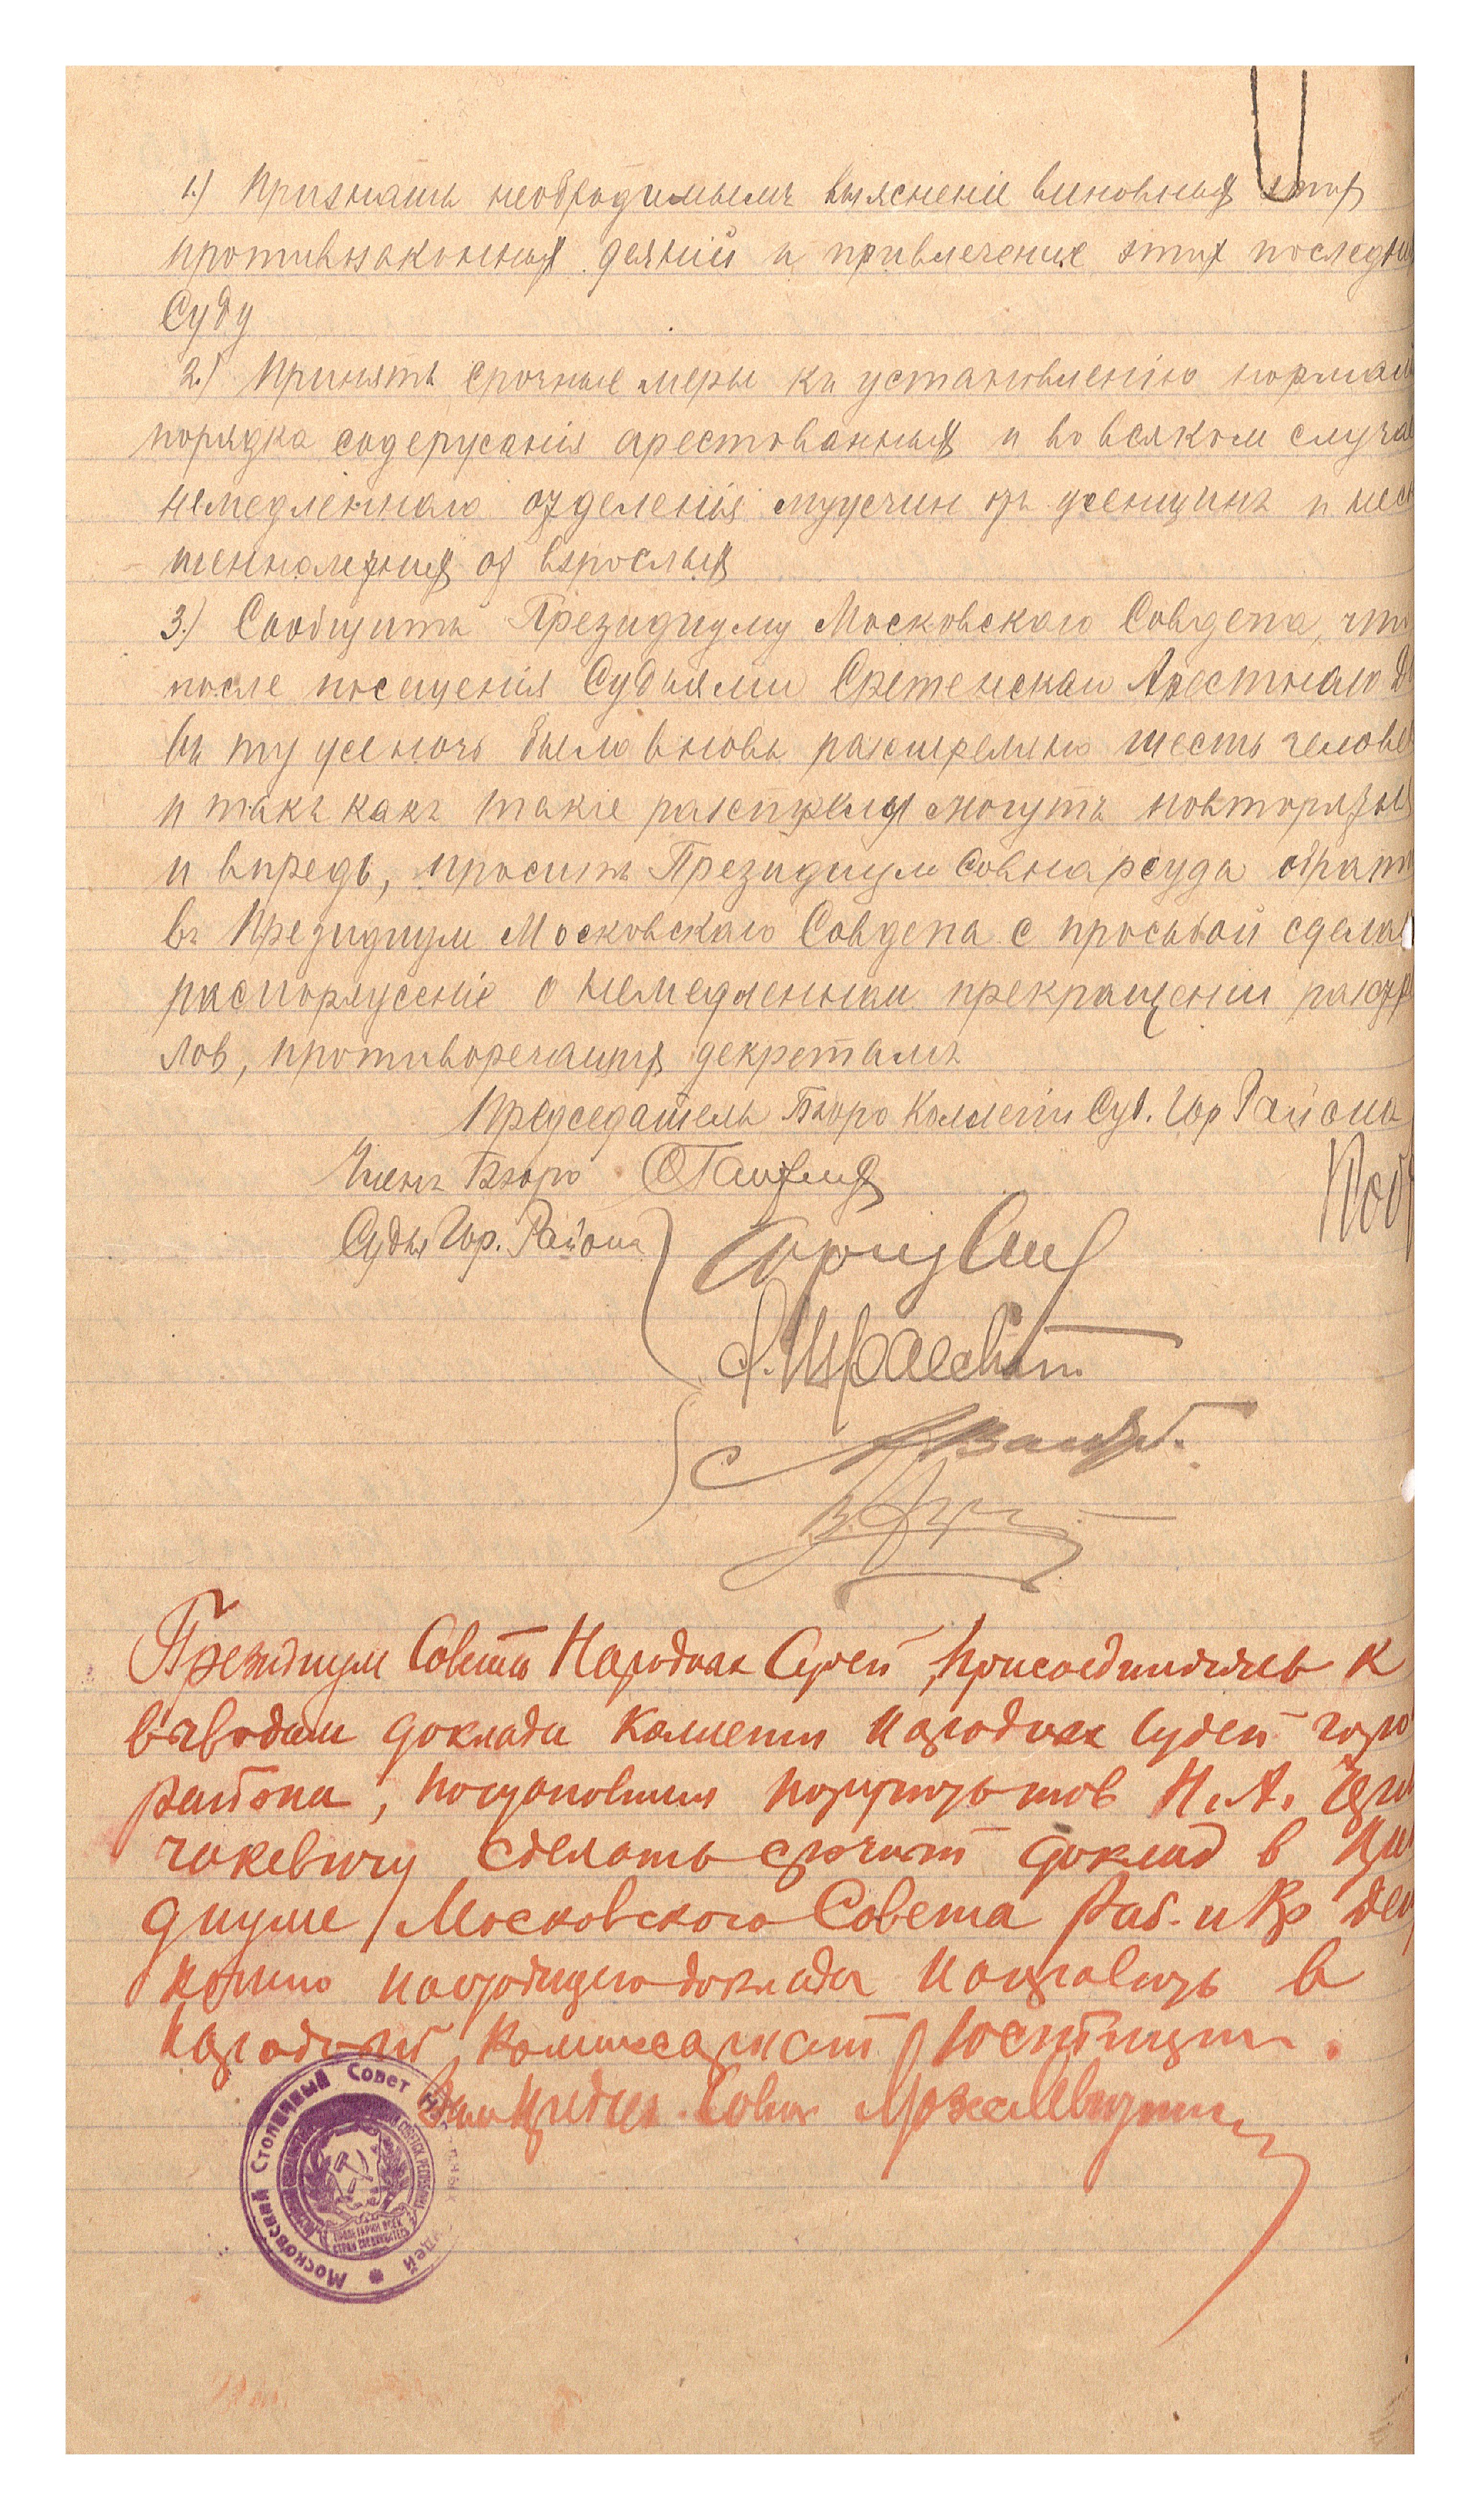 1.) Признать необходимымъ выясненіе виновных этих
противозаконных деяний и привлечение этих последн
Суду
2.) Принять срочные меры къ установленію нормаль
порядка содержанія арестованных и во всяком случа
немедленнаго отделенія мужчин отъ женщинъ и нес
шеннолетних от взрослых
3.) Сообщить Президиуму Московскаго Совдепа, что
после посещенія Судьями Сретенскаго Арестнаго Д
въ ту же ночь было вновь разстреляно шесть челове
и такъ какъ такіе разстрелы могутъ повторяться
и впредь, просить Президиум Совнарсуда обрат
въ Президиум Московскаго Совдепа с просьбой сдела
распоряженіе о немедленном прекращении разстре
лов, противоречащих декретамъ
Председатель Бюро Коллегіи Суд. Гор Района
Членъ Бюро
Судьи Гор. Района
Президиум Совета Народных Судей, присоединяясь к
выводам доклада коллегии народных судей горо
района, постановил поручить тов Н. А.
чакевичу сделать срочный доклад в Пре
диуме Московского Совета Раб. и Кр Деп
копию настоящего доклада направить в
Народный Комиссариат Юстиции.
Московский Столичный Совет Народных Судей